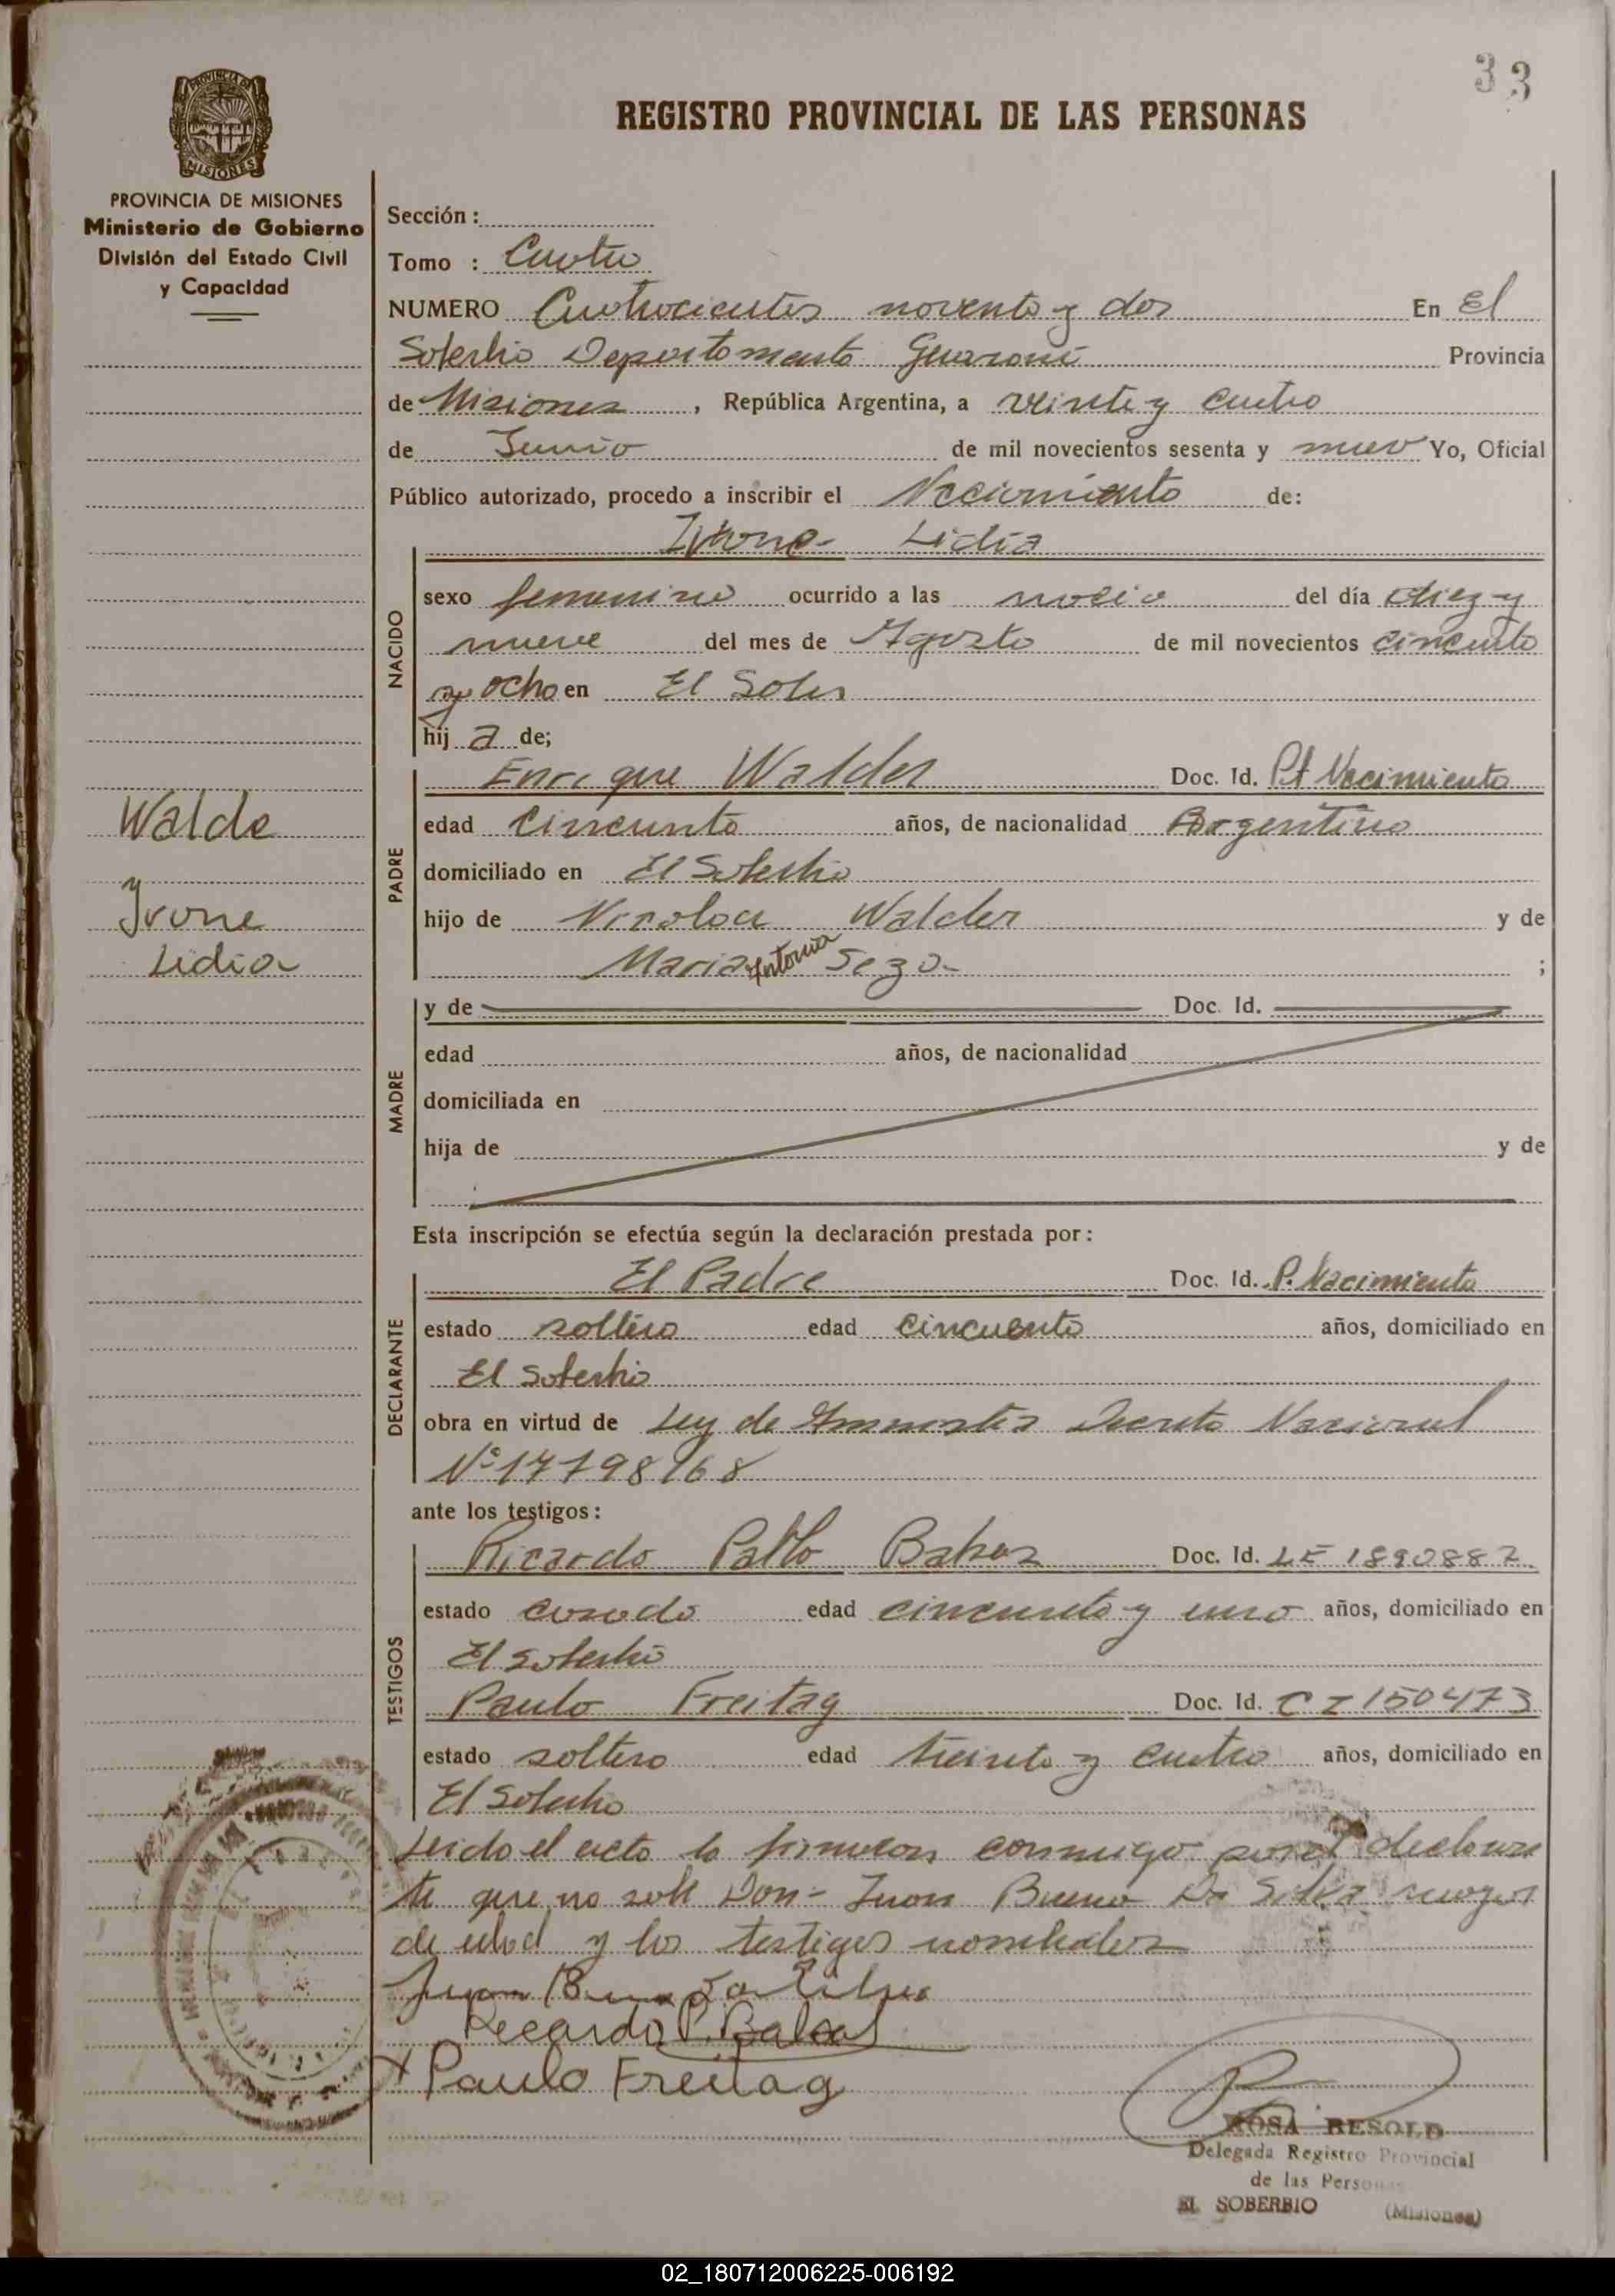 33
REGISTRO PROVINCIAL DE LAS PERSONAS
PROVINCIA DE MISIONES
MISIONES
PROVINCIA DE MISIONES
Ministerio de Gobierno
División del Estado Civil
y Capacidad
Walde
Yvone
Lidia
Sección :
Tomo : Cuatro
NUMERO Cuatrocientos noventa y dos En El
Soberbio Departamento Guaraní Provincia
de Misiones , República Argentina, a veinte y cuatro
de Junio de mil novecientos sesenta y nuev Yo, Oficial
Público autorizado, procedo a inscribir el Nacimiento de:
Ivone- Lidia
NACIDO
sexo femenino ocurrido a las del día diez y
nueve del mes de Agosto de mil novecientos cincuenta
y ocho en El
hij a de;
PADRE
Enrique Walder Doc. Id. Pt Nacimiento
edad cincuenta años, de nacionalidad Argentino
domiciliado en El Soberbio
hijo de Nicolas Walder y de
Maria Antonia Seza- ;
MADRE
y de Doc. Id.
edad años, de nacionalidad
domiciliada en
hija de y de
Esta inscripción se efectúa según la declaración prestada por :
DECLARANTE
El Padre Doc. Id. P. Nacimiento
estado soltero edad cincuenta años, domiciliado en
El Soberbio
obra en virtud de Ley de Amnistia Decreto Nacional
Nº 17798/68
ante los testigos :
TESTIGOS
Ricardo Pablo Doc. Id. LE 1890887
estado casado edad cincuenta y uno años, domiciliado en
El Soberbio
Paulo Freitag Doc. Id. CI 150473
estado soltero edad treinta y cuatro años, domiciliado en
El Soberbio
Leido el acta la firmaron conmigo por el declaran
te que no sabe Don- Juan Bueno Da Silva mayor
de edad y los testigos nombrados
Juan Bueno Da Silva
Recardo P.
x Paulo Freitag
ROSA RESOLD
Delegada Registro Provincial
de las Personas
EL SOBERBIO (Misiones)
02_180712006225-006192